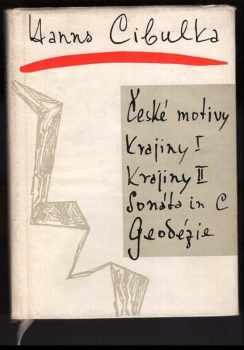 Hanns Cibulka
České motivy
Krajiny I
Krajiny II
Sonáta in C
Geodézie